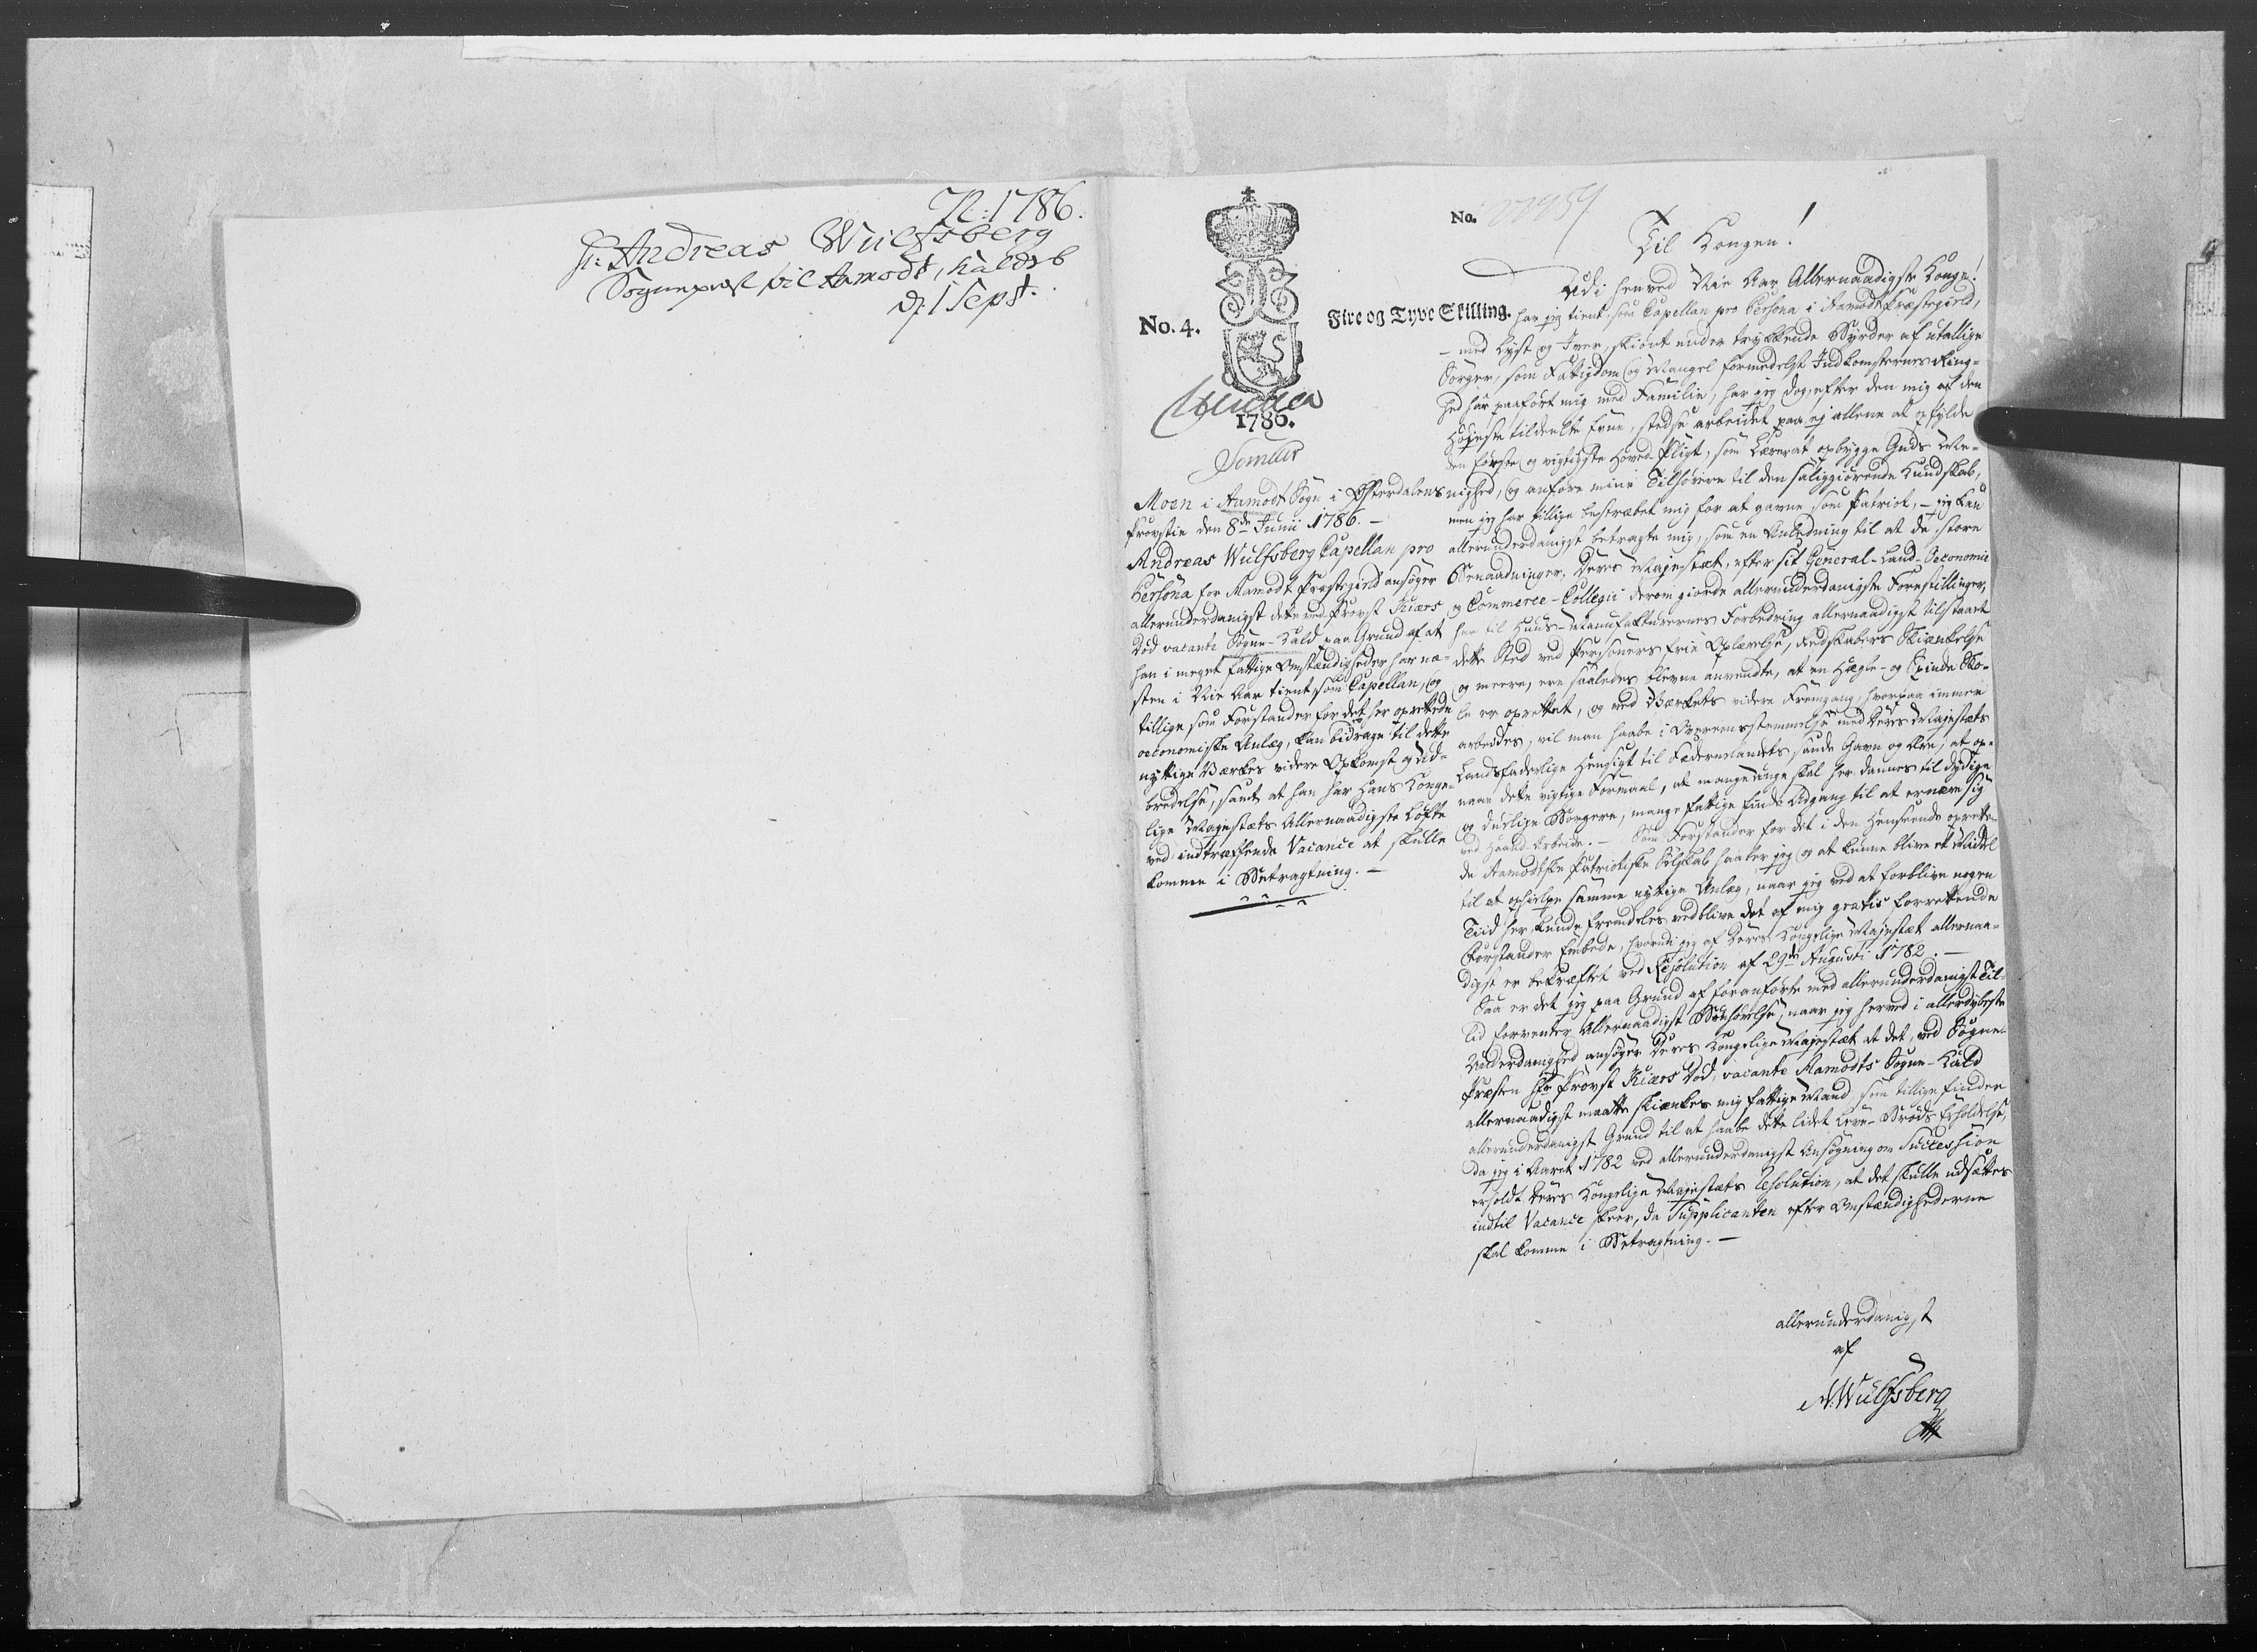 N: 1786.
Hr: Andreas Wulfsberg
Sogneprest til Aamodt, kaldet
d: 1 Sept.
No. 4.
Fire og Tyve Skilling.
No. 22959
1786.
Moen i Aamodt Sogn i Østerdalens
Provstie den 8de Junii 1786. –
Andreas Wulfsberg Capellan pro
Persona for Aamodt Præstegield ansøger
allerunderdanigst dette ved Provst Kiærs
Død vacante Sogne-Kald paa Grund af at
han i meget fattige Omstændigheder har næ-
sten i Nie Aar tient som Capellan, og
tillige som Forstander for det her oprettede
oeconomiske Anlæg, kan bidrage til dette
nyttige Værkes videre Opkomst og Ud-
bredelse, samt at han har Hans Konge-
lige Majestæts Allernaadigste Løfte
ved indtræffende Vacance at skulle
komme i Betragtning. –
Til Kongen!
Udi henved Nie Aar Allernaadigste Konge!
har jeg tient som Capellan pro Persona i Aamodt Præstegield,
– med Lyst og Iver, skiønt under trykkende Byrder af utallige
Sorger, som Fattigdom og Mangel formedelst Indkomsternes Ring-
hed har paaført mig med Familie, har jeg dog, efter den mig af den
Høyeste tildeelte Evne, stedse arbeidet paa ej allene at opfylde
den første og vigtigste Hoved-Pligt, som Lærer at opbygge Guds Me-
nighed, og anføre mine Tilhørere til den saliggiørende Kundskab,
men jeg har tillige bestræbet mig for at gavne som Patriot, – jeg kan
allerunderdanigst betragte mig, som en Anledning til at de store
Benaadninger, Deres Majestæt, efter sit General-Land-Oeconomie
og Commerce-Collegii derom giorde allerunderdanigste Forestillinger,
har til Huus-Manufacturernes Forbedring allernaadigst tilstaaet
dette Sted ved Personers frie Oplærelse, Redskabers Skiænkelse
og meere, ere saaledes blevne anvendte, at en Hægle- og Spinde Sko-
le er oprettet, og ved Værkets videre Fremgang, hvorpaa immer
arbeides, vil man haabe i Overeensstemmelse med Deres Majestæts
Landsfaderlige Hensigt til Fædernelandets sande Gavn og Ære, at op-
naae dette vigtige Formaal, at mange unge skal her dannes til dydige
og duelige Borgere, mange fattige finde Udgang til at ernære sig
ved Haand-Arbeide. – Som Forstander for det i den Henseende oprette-
de Aamodtske Patriotiske Selskab haaber jeg og at kunne blive et Middel
til at ophielpe samme nyttige Anlæg, naar jeg ved at forblive nogen
Tiid her, kunde fremdeles vedblive det af mig gratis forrettende
Forstander Embede, hvorudi jeg af Deres Kongelige Majestæt allernaa-
digst er bekræftet ved Resolution af 29de Augusti 1782. –
Saa er det jeg paa Grund af foranførte med allerunderdanigst Til-
lid forventer Allernaadigst Bønhørelse, naar jeg herved i allerdybeste
Underdanighed ansøger Deres Kongelige Majestæt at det, ved Sogne-
Præsten Hr Provst Kiærs Død, vacante Aamodts Sogne-Kald
allernaadigst maatte skiænkes mig fattige Mand, som tillige finder
allerunderdanigst Grund til at haabe dette lidet Leve-Brøds Erholdelse,
da jeg i Aaret 1782 ved allerunderdanigst Ansøgning om Succession
erholdt Deres Kongelige Majestæts Resolution, at det skulle udsættes
indtil Vacance skeer, da Supplicanten efter Omstændighederne
skal komme i Betragtning. –
allerunderdanigst
af
A. Wulfsberg